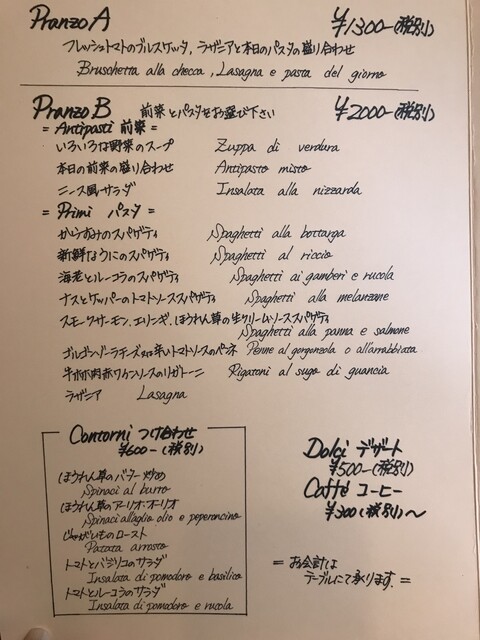 Pranzo A ¥1300-(税別)
フレッシュトマトのブルスケッタ, ラザニアと本日のパスタの盛り合わせ
Bruschetta alla checca, Lasagna e pasta del giorno
Pranzo B 前菜とパスタをお選び下さい ¥2000-(税別)
= Antipasti 前菜 =
いろいろな野菜のスープ Zuppa di verdura
本日の前菜の盛り合わせ Antipasto misto
ニース風サラダ Insalata alla nizzarda
= Primi パスタ =
からすみのスパゲティ Spaghetti alla bottarga
新鮮なうにのスパゲティ Spaghetti al riccio
海老とルーコラのスパゲティ Spaghetti ai gamberi e rucola
ナスとケッパーのトマトソーススパゲティ Spaghetti alla melanzane
スモークサーモン、エリンギ、ほうれん草の生クリームソーススパゲティ
Spaghetti alla panna e salmone
ゴルゴンゾーラチーズor辛いトマトソースのペンネ Penne al gorgonzola o all'arrabbiata
牛ホホ肉赤ワインソースのリガトーニ Rigatoni al sugo di guancia
ラザニア Lasagna
Contorni つけ合わせ
¥600-(税別)
ほうれん草のバター炒め
Spinaci al burro
ほうれん草のアーリオ・オーリオ
Spinaci all'aglio olio e peperoncino
じゃがいものロースト
Patata arrosto
トマトとバジリコのサラダ
Insalata di pomodoro e basilico
トマトとルーコラのサラダ
Insalata di pomodoro e rucola
Dolci デザート
¥500-(税別)
Caffé コーヒー
¥300(税別)〜
= お会計は
テーブルにて承ります. =